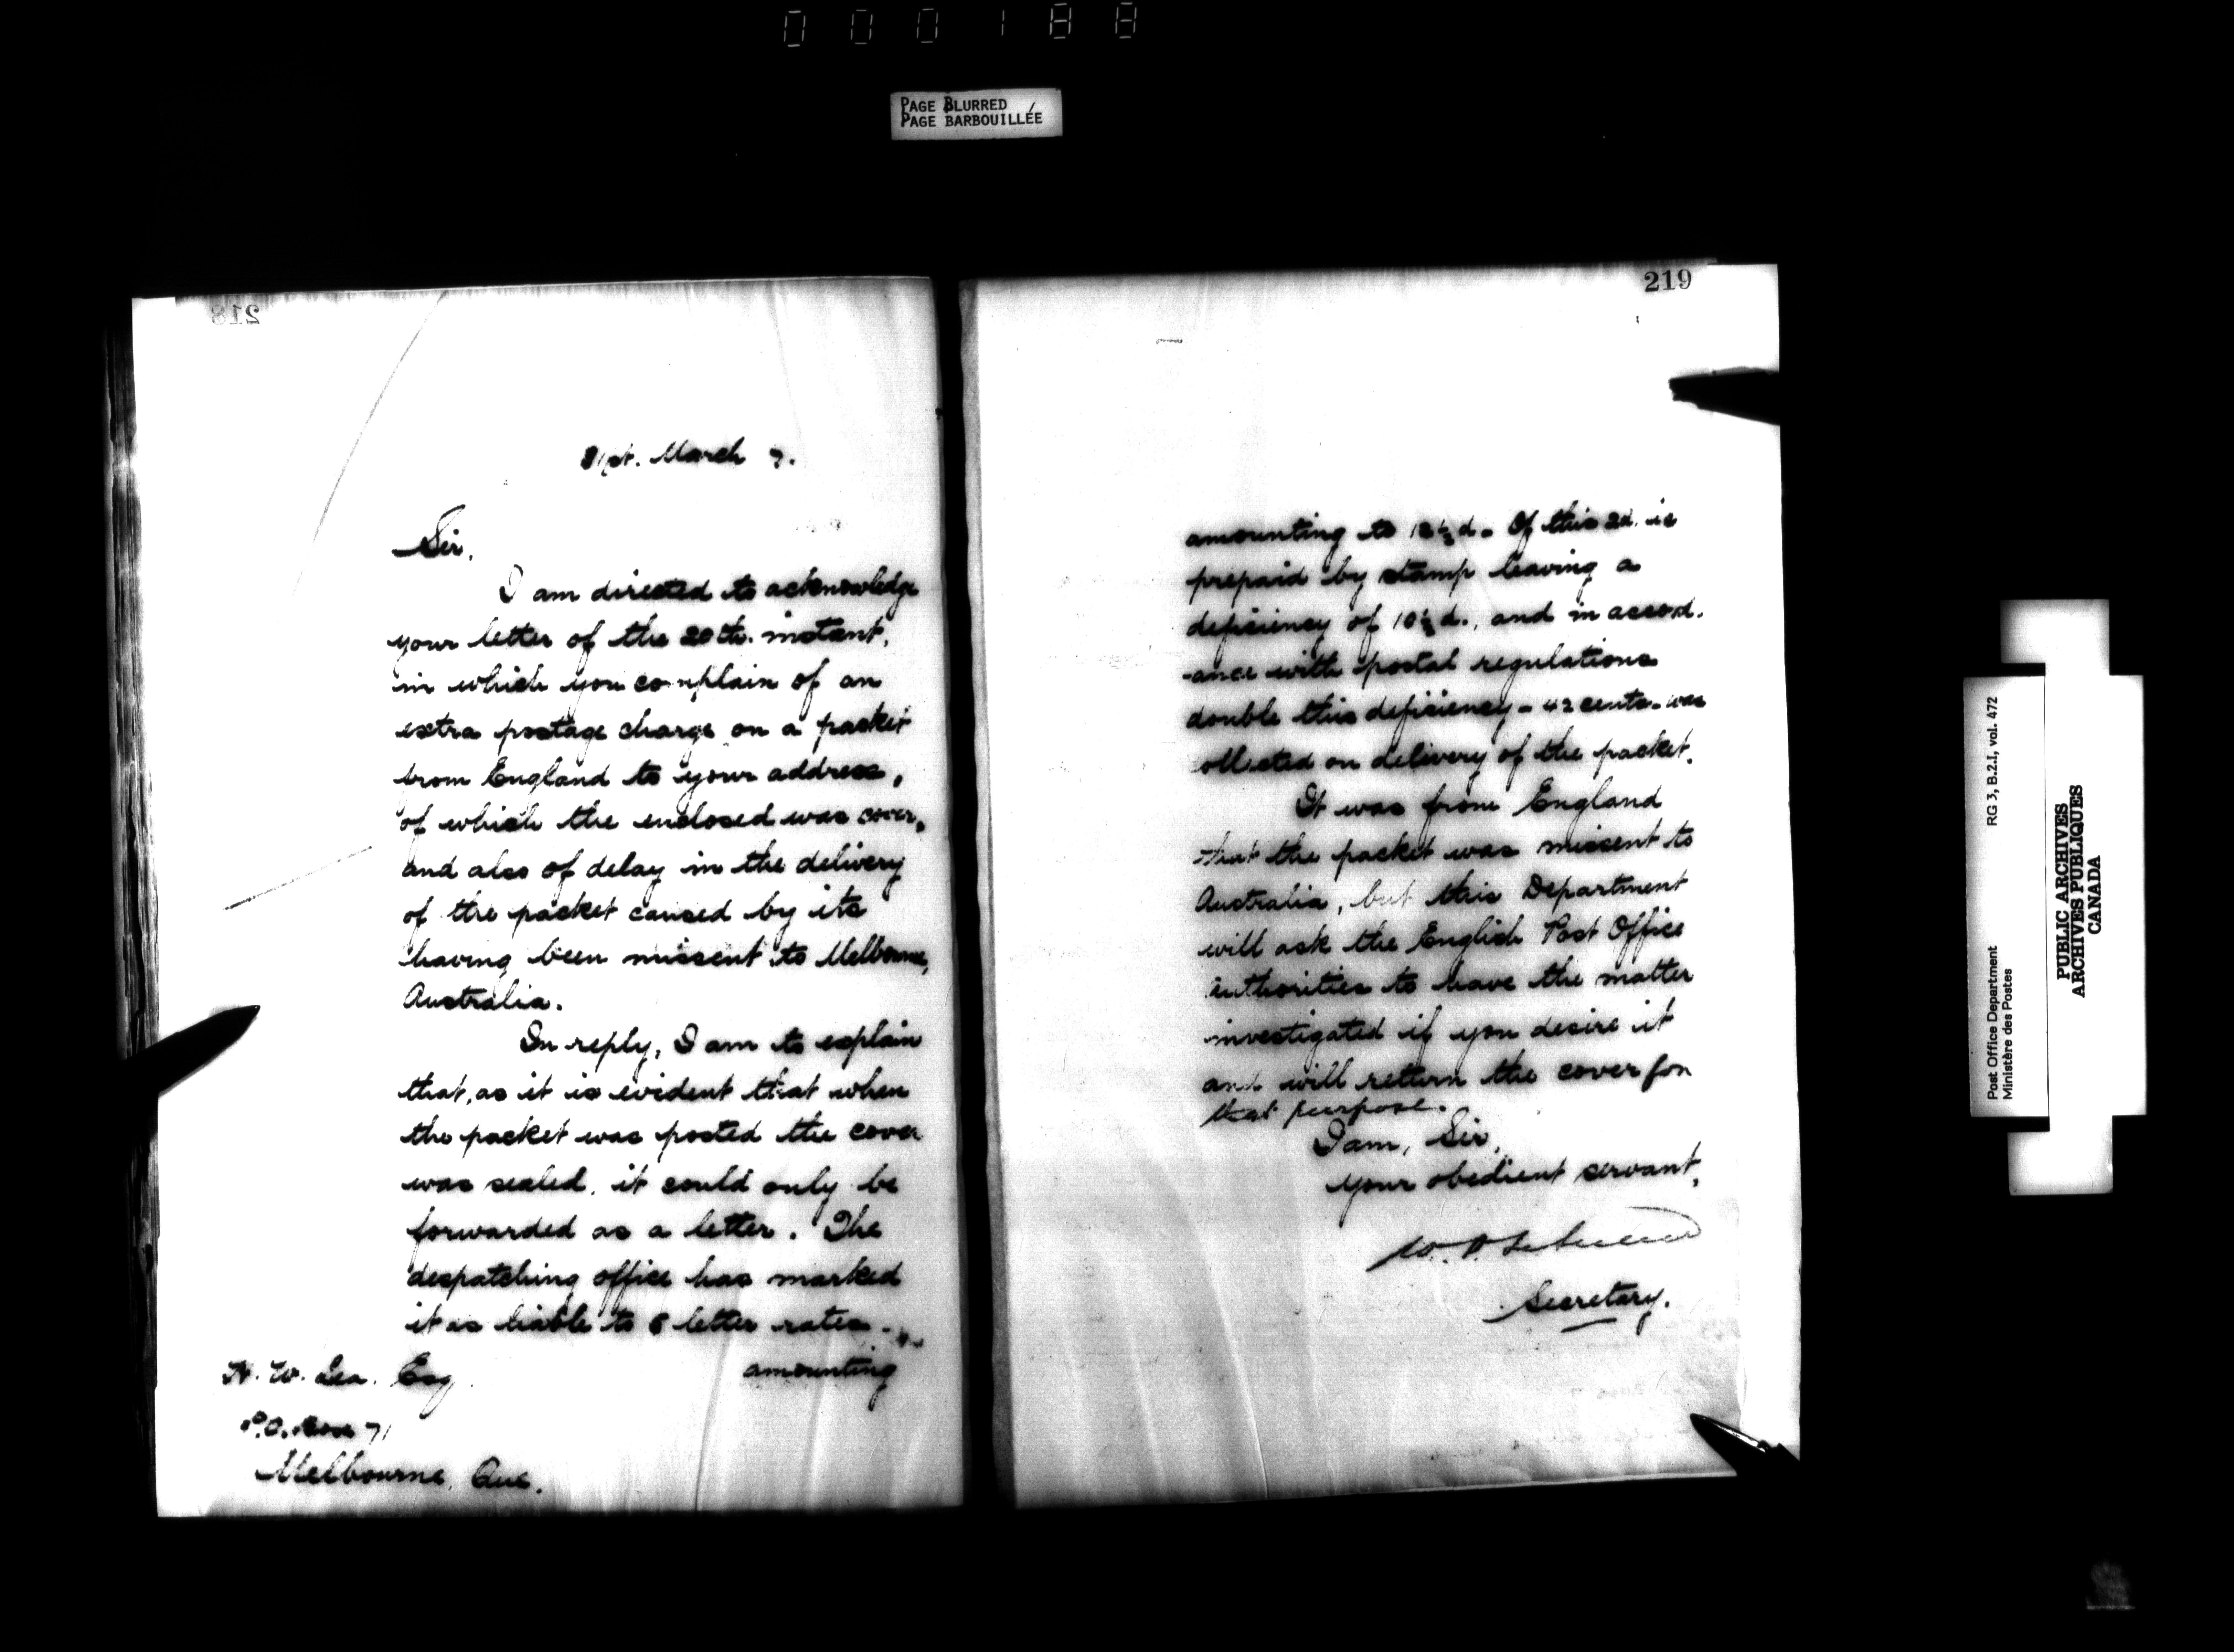 000188
PAGE BLURRED
PAGE BARBOUILLÉE
218
21st. March 7.
Sir,
I am directed to acknowledge
your letter of the 20th. instant,
in which you complain of an
extra postage charge on a packet
from England to your address,
of which the enclosed was cover,
and also of delay in the delivery
of the packet caused by its
having been missent to Melbourne,
Australia.
In reply, I am to explain
that, as it is evident that when
the packet was posted the cover
was sealed, it could only be
forwarded as a letter. The
despatching office has marked
it as liable to 6 letter rates -
amounting
H. W. Lea. Esq.
P.O. Box 71
Melbourne, Que.
219
amounting to 12½d. Of this 2d. is
prepaid by stamp leaving a
deficiency of 10½d., and in accord-
-ance with postal regulations
double this deficiency - 42 cents - was
collected on delivery of the packet.
It was from England
that the packet was missent to
Australia, but this Department
will ask the English Post Office
authorities to have the matter
investigated if you desire it
and will return the cover for
that purpose.
I am, Sir,
Your obedient servant,
Secretary.
Post Office Department RG 3, B.2.I, vol. 472
Ministère des Postes
PUBLIC ARCHIVES
ARCHIVES PUBLIQUES
CANADA